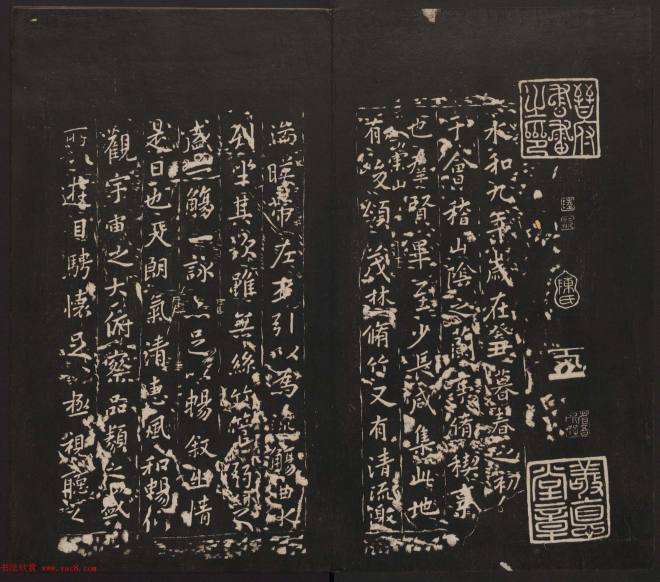 永和九年歲在癸丑暮春之初
于會稽山陰之蘭亭脩禊事
也群賢畢至少長咸集此地
有崇山峻領茂林脩竹又有清流激
湍暎帶左右引以為流觴曲水
列坐其次雖無絲竹管弦之
盛一觴一詠亦足以暢叙幽情
是日也天朗氣清惠風和暢仰
觀宇宙之大俯察品類之盛
所以遊目騁懷足以極視聽之
五
書法欣賞 www.yac8.com